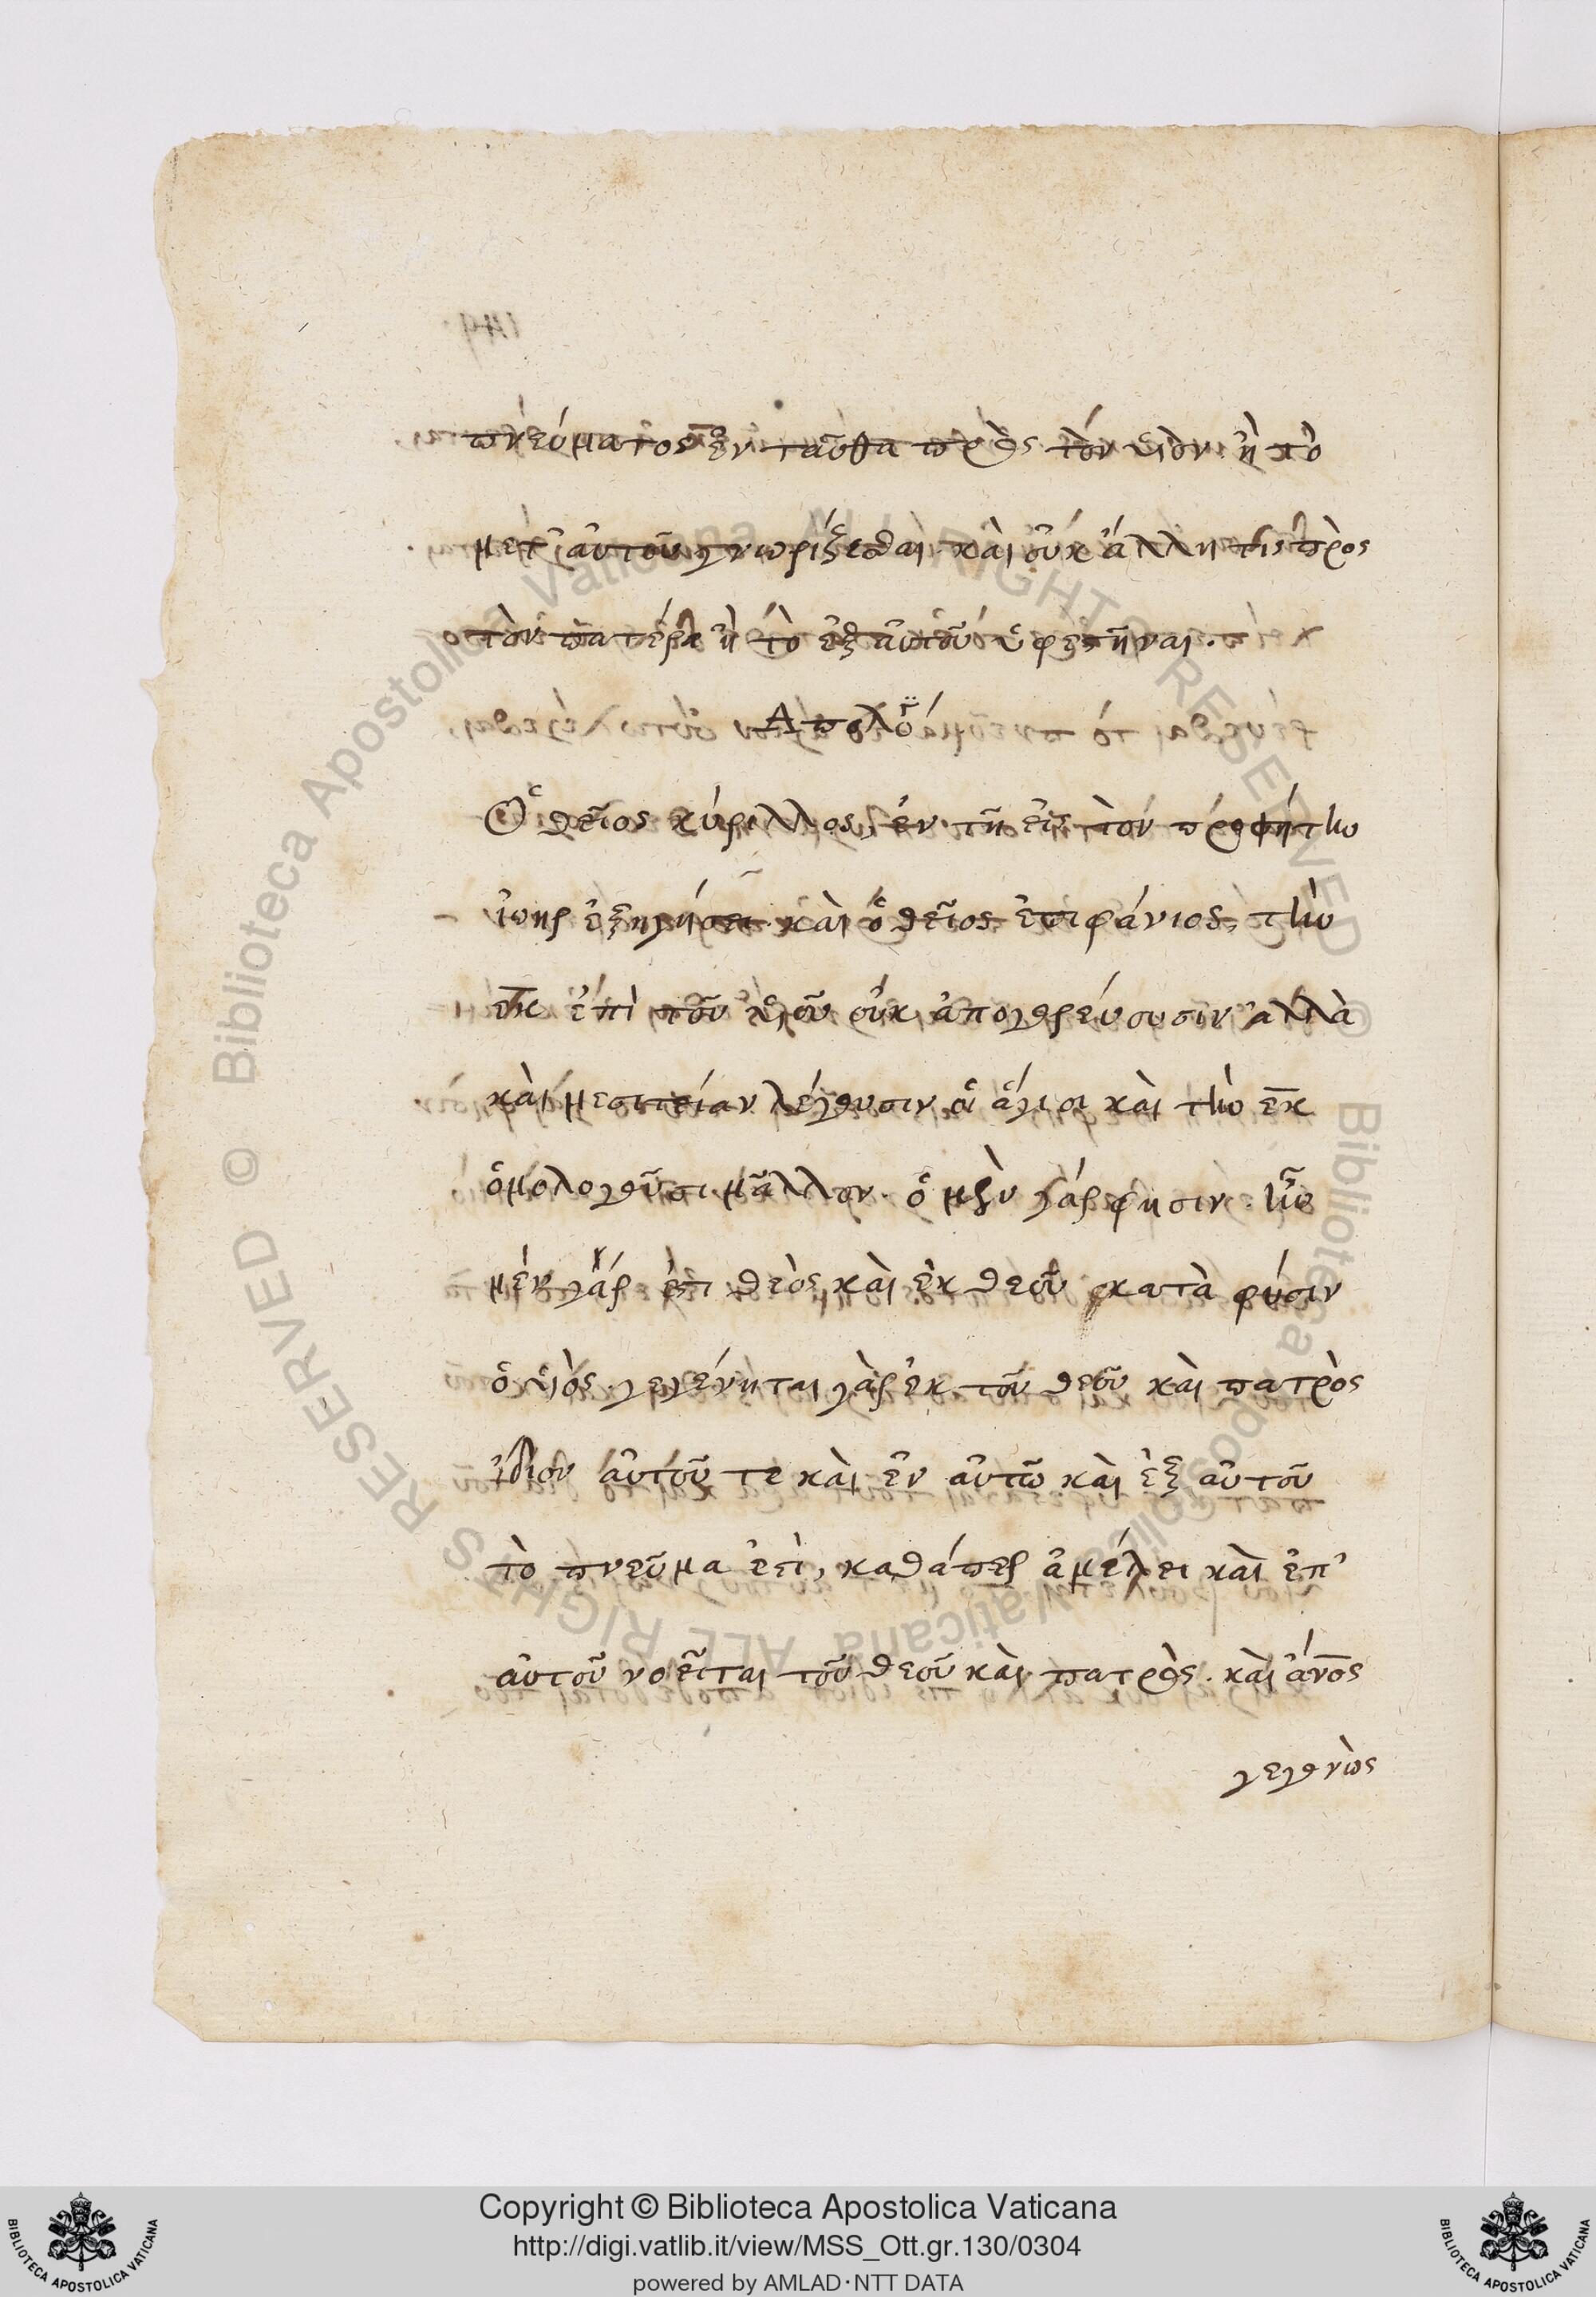 πνεύματος ἐνταῦθα πρὸς τὸν υἱὸν ἢ τὸ
μετ' αὐτοῦ γνωρίζεσθαι. καὶ οὐκ ἄλλη τίς πρὸς
τὸν πατέρα ἢ τὸ ἐξ αὐτοῦ ὑφεστῆναι.
Ἀπολογία
Ὁ θεῖος κύριλλος, ἐν τῆ εἰς τὸν προφήτην
ἰωὴλ ἐξηγήσει. καὶ ὁ θεῖος ἐπιφάνιος, τὴν
ἐκ ἐπὶ τοῦ υἱοῦ οὐκ ἀπαγορεύουσιν ἀλλὰ
καὶ μεσιτείαν λέγουσιν οἱ ἅγιοι καὶ τὴν ἐκ
ὁμολογοῦσι μᾶλλον. ὁ μὲν γάρ φησιν. ἧ
μὲν γάρ ἐστι θεὸς καὶ ἐκ θεοῦ κατὰ φύσιν
ὁ υἱὸς. γεγένηται γὰρ ἐκ τοῦ θεοῦ καὶ πατρὸς
ἴδιον αὐτοῦ τε καὶ ἐν αὐτῶ καὶ ἐξ αὐτοῦ
τὸ πνεῦμα ἐστὶ, καθάπερ ἀμέλει καὶ ἐπ'
αὐτοῦ νοεῖται τοῦ θεοῦ καὶ πατρὸς. καὶ ἄνος
γεγονὼς
Copyright © Biblioteca Apostolica Vaticana
http://digi.vatlib.it/view/MSS_Ott.gr.130/0304
powered by AMLAD·NTT DATA